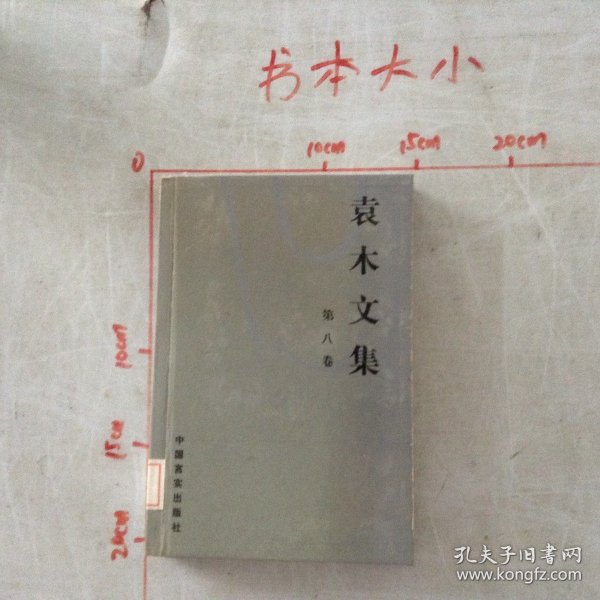 书本大小
0
10cm
15cm
20cm
袁木文集
第八卷
中国言实出版社
10cm
15cm
20cm
孔夫子旧书网
www.kongfz.com